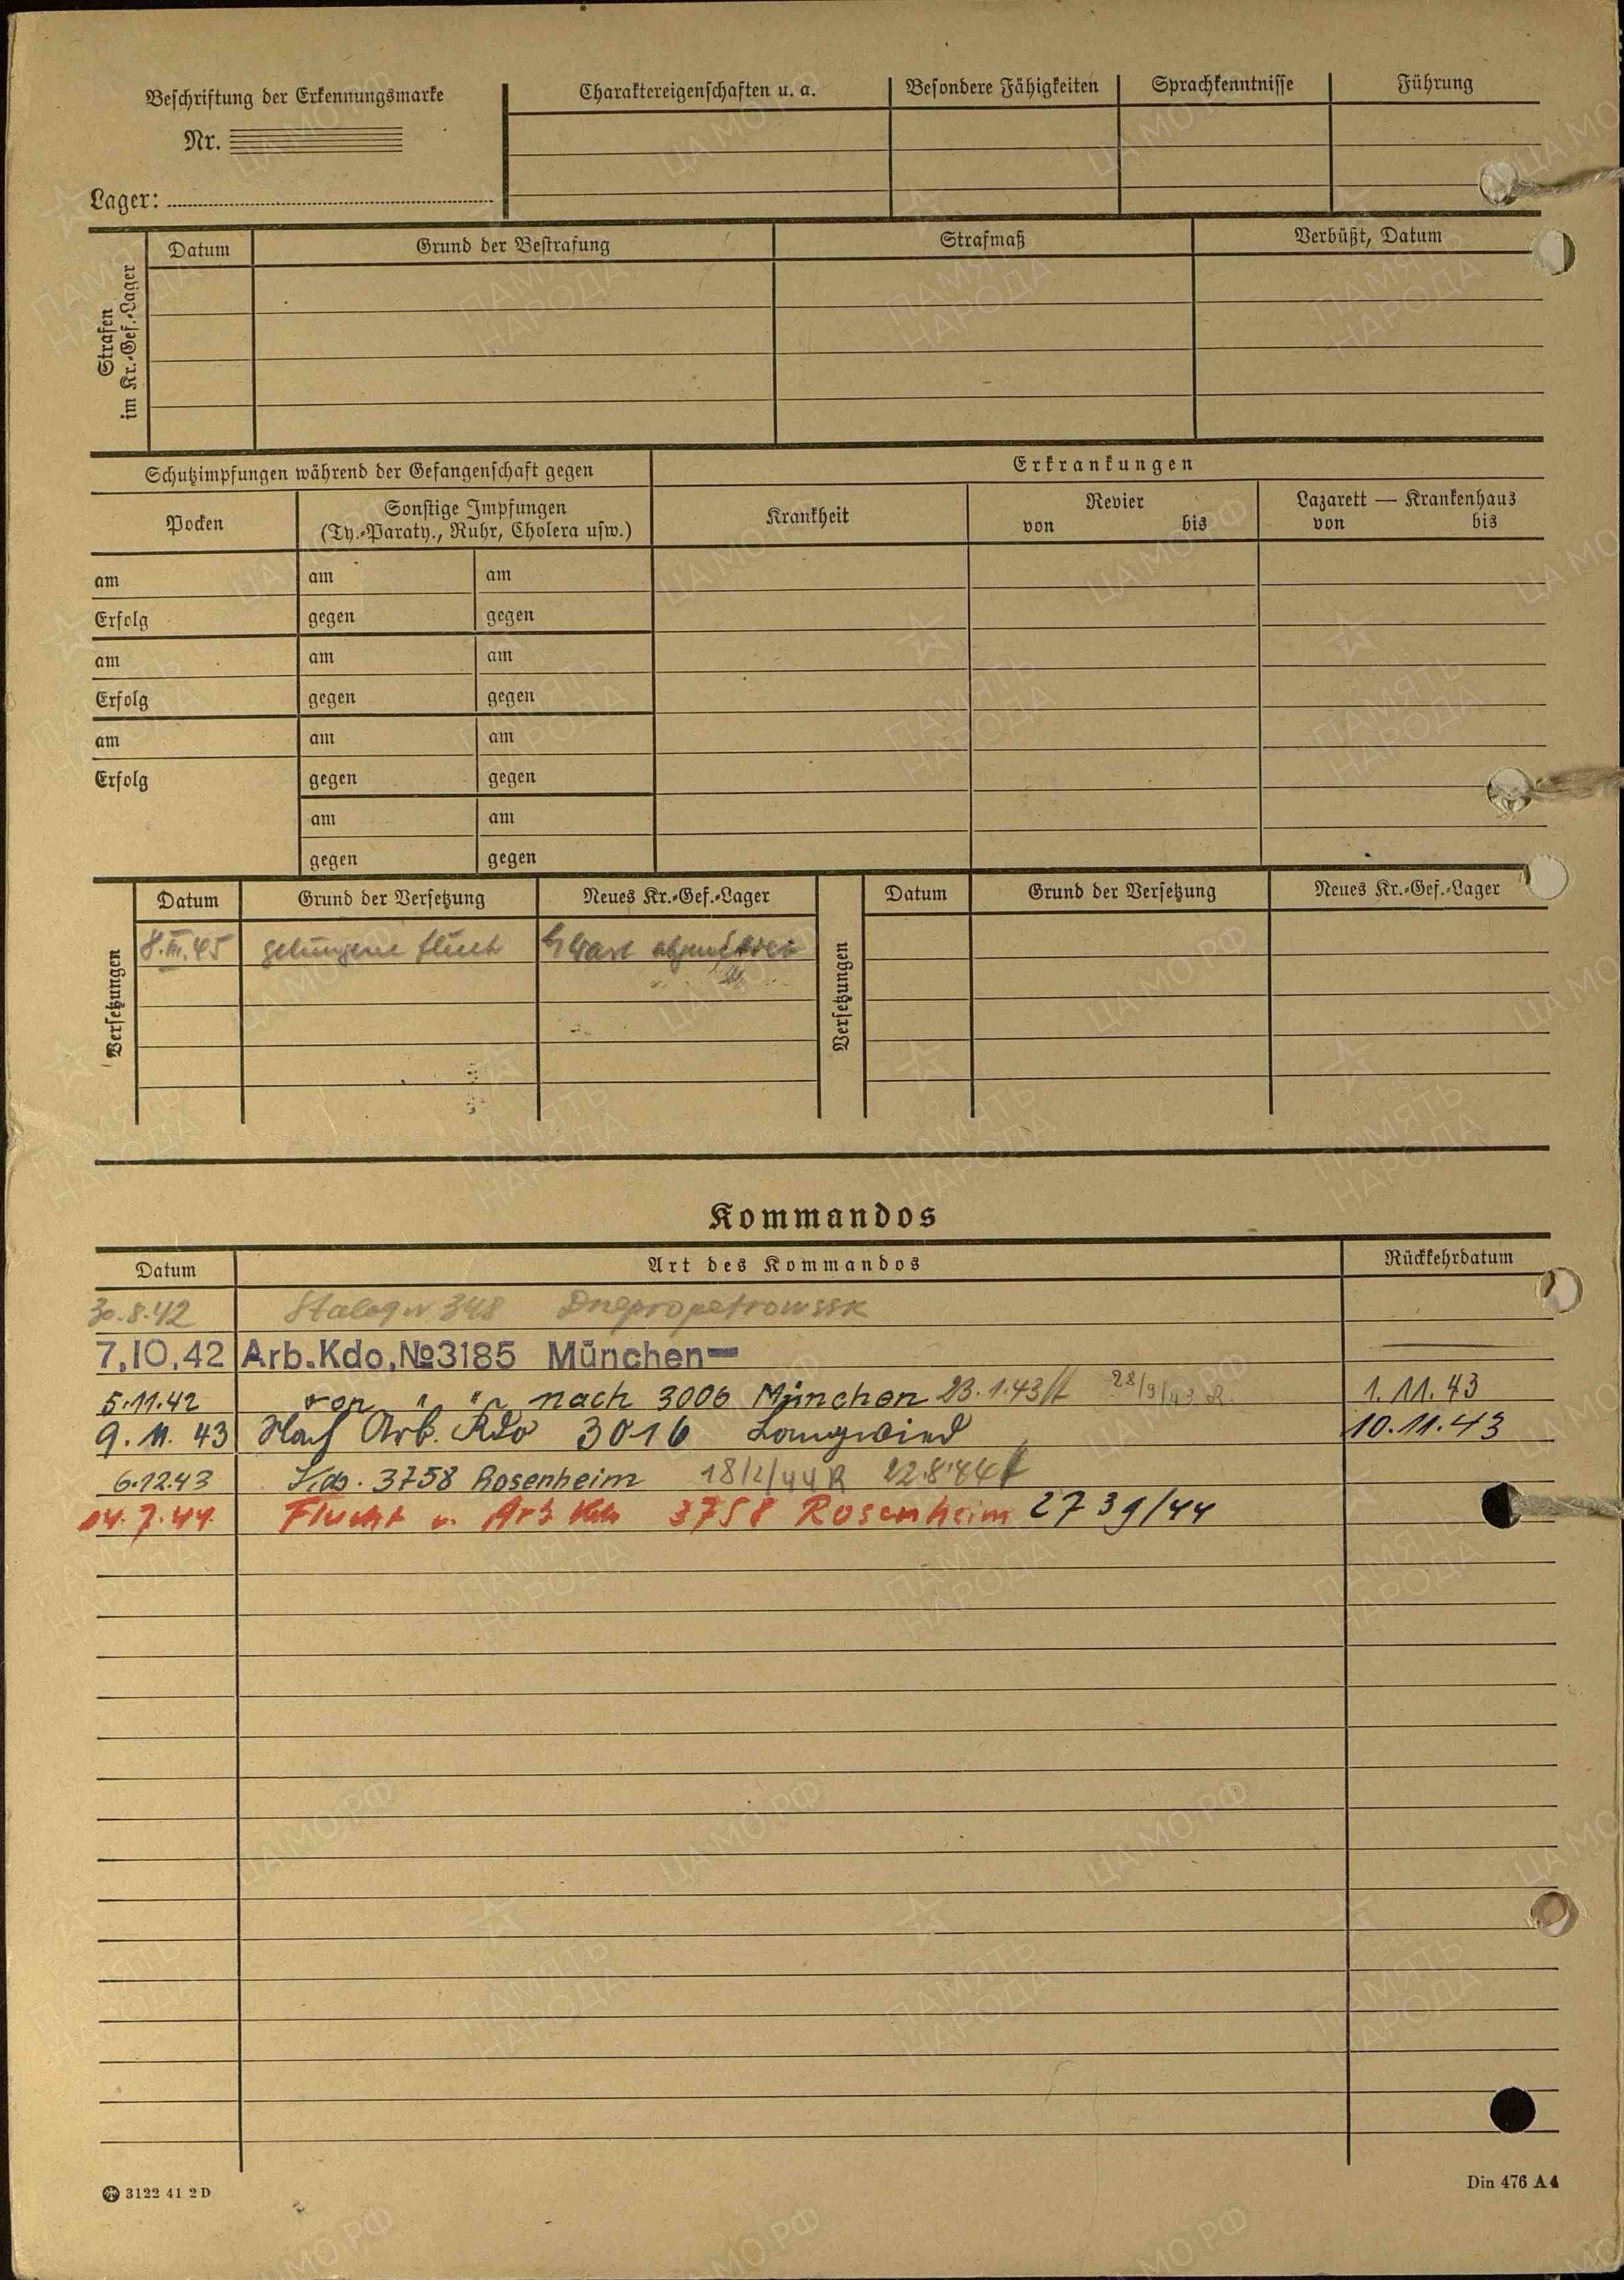 Beschriftung der Erkennungsmarke
Nr.
Lager:
Charaktereigenschaften u. a.
Besondere Fähigkeiten
Sprachkenntnisse
Führung
Strafen
im Kr.-Gef.-Lager
Datum
Grund der Bestrafung
Strafmaß
Verbüßt, Datum
Schutzimpfungen während der Gefangenschaft gegen
Erkrankungen
Pocken
Sonstige Impfungen
(Ty.-Paraty., Ruhr, Cholera usw.)
Krankheit
Revier
von bis
Lazarett — Krankenhaus
von bis
am am am
Erfolg gegen gegen
am am am
Erfolg gegen gegen
am am am
Erfolg gegen gegen
am am
gegen gegen
Versetzungen
Datum Grund der Versetzung Neues Kr.-Gef.-Lager
8.III.45 gelungene Flucht
Versetzungen
Datum Grund der Versetzung Neues Kr.-Gef.-Lager
Kommandos
Datum Art des Kommandos Rückkehrdatum
30.8.42 Stalag 348 Dnepropetrowssk
7.10.42 Arb.Kdo.№3185 München-
5.11.42 von " " nach 3006 München 23.1.43 28/9/43 R 1.11.43
9.11.43 Nach Arb. Kdo 3016 Langwied 10.11.43
6.12.43 Kdo. 3758 Rosenheim 18/2/44 R 22.8.44
14.7.44 Flucht v. Arb Kdo 3758 Rosenheim 2739/44
3122 41 2 D
Din 476 A4
ПАМЯТЬ НАРОДА
ЦАМО РФ